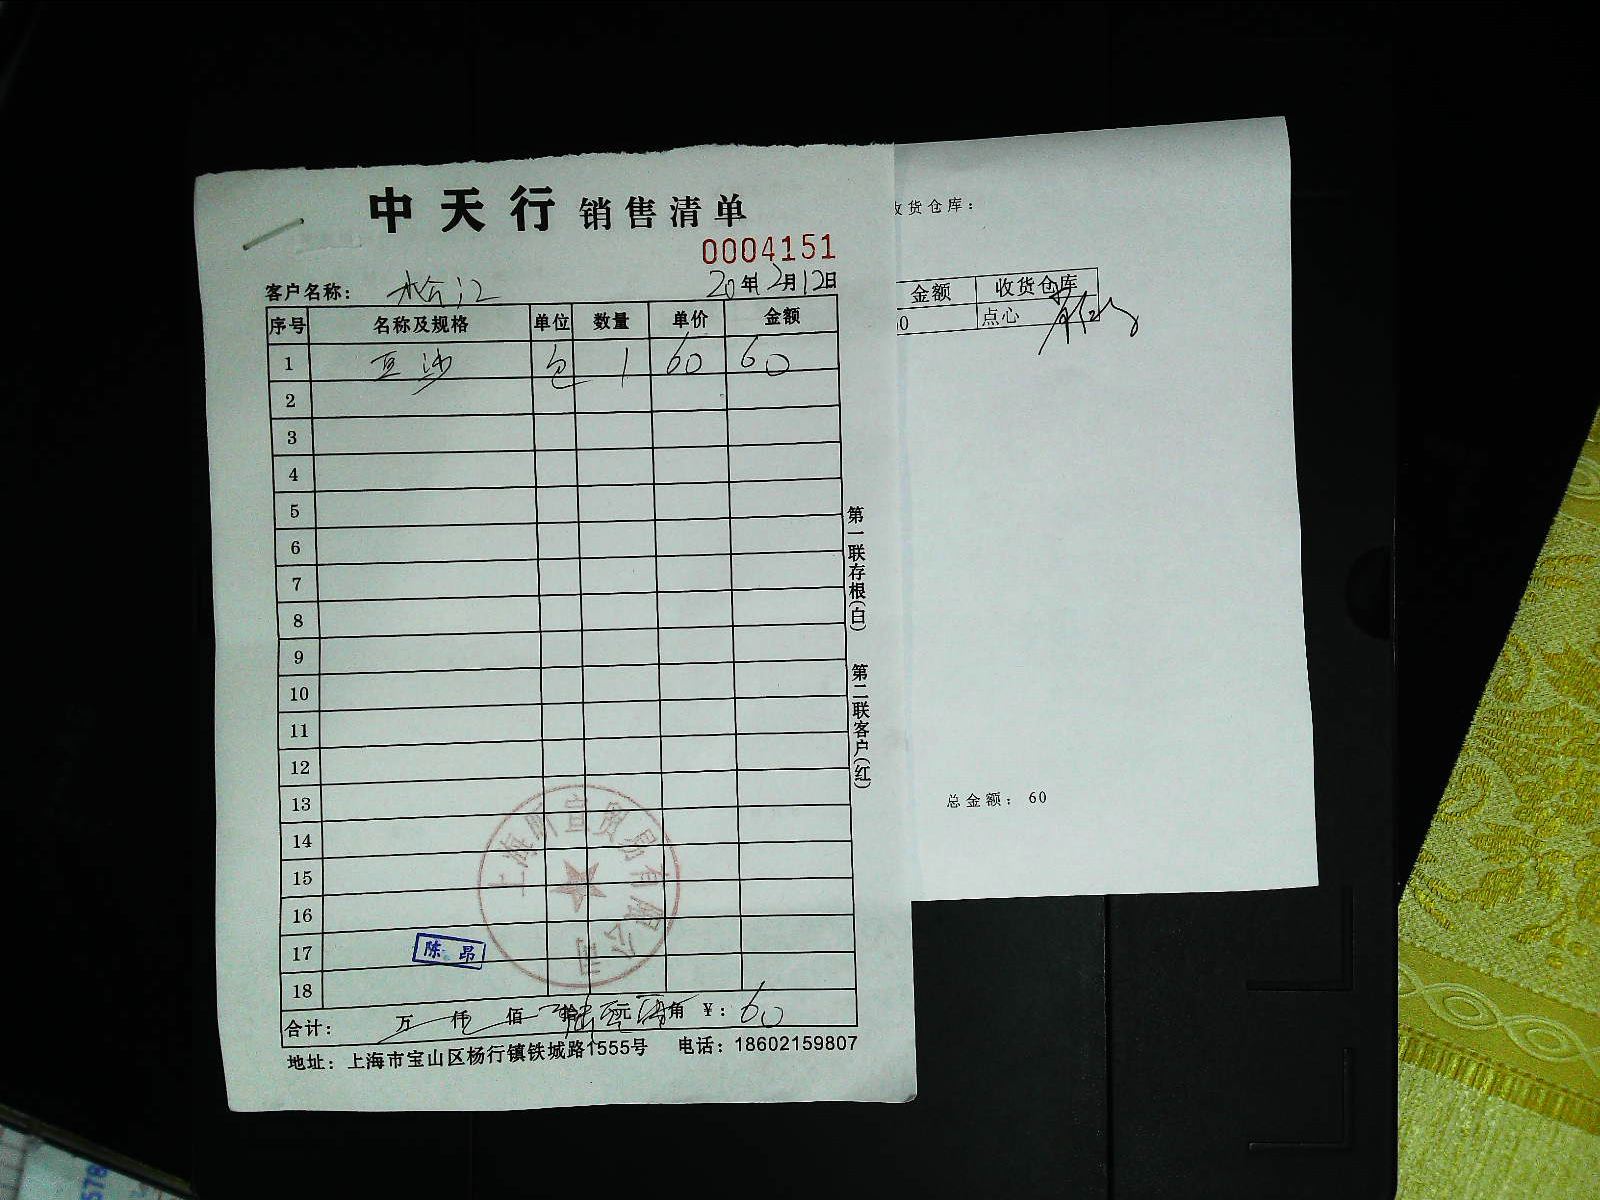 中天行 销售清单
0004151
客户名称： 松江 20年2月12日
序号 名称及规格 单位 数量 单价 金额
1 豆沙 包 1 60 60
2
3
4
5
6
7
8
9
10
11
12
13
14
15
16
17
18
陈昂
合计： 万 仟 佰 拾 元 角 ￥：60
地址：上海市宝山区杨行镇铁城路1555号 电话：18602159807
第一联存根(白) 第二联客户(红)
收货仓库：
金额 收货仓库
0 点心
总金额：60
578